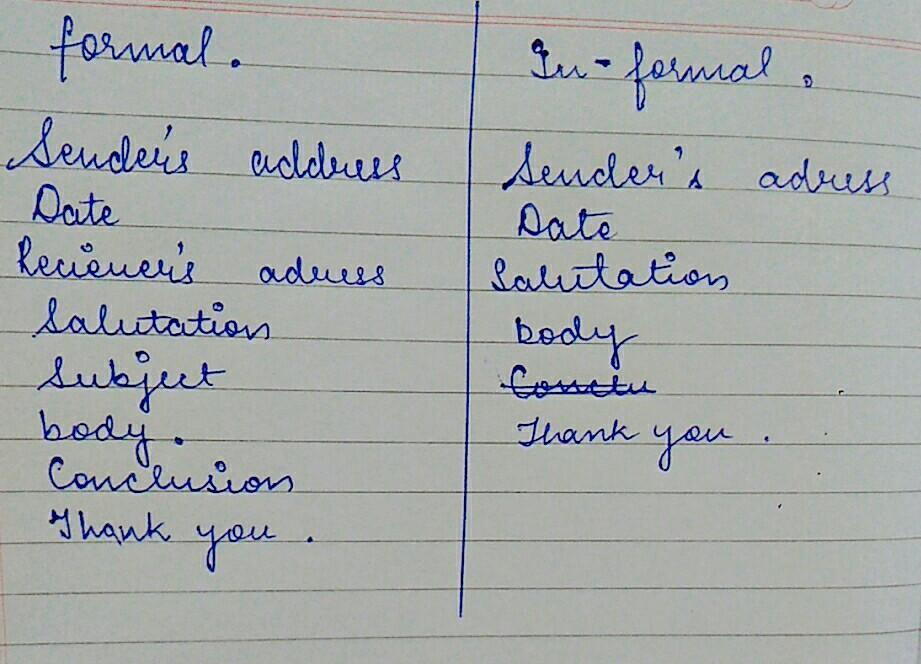 formal.
Sender's address
Date
Reciever's adress
Salutation
Subject
body.
Conclusion
Thank you.
In-formal.
Sender's adress
Date
Salutation
body
Conclu
Thank you.